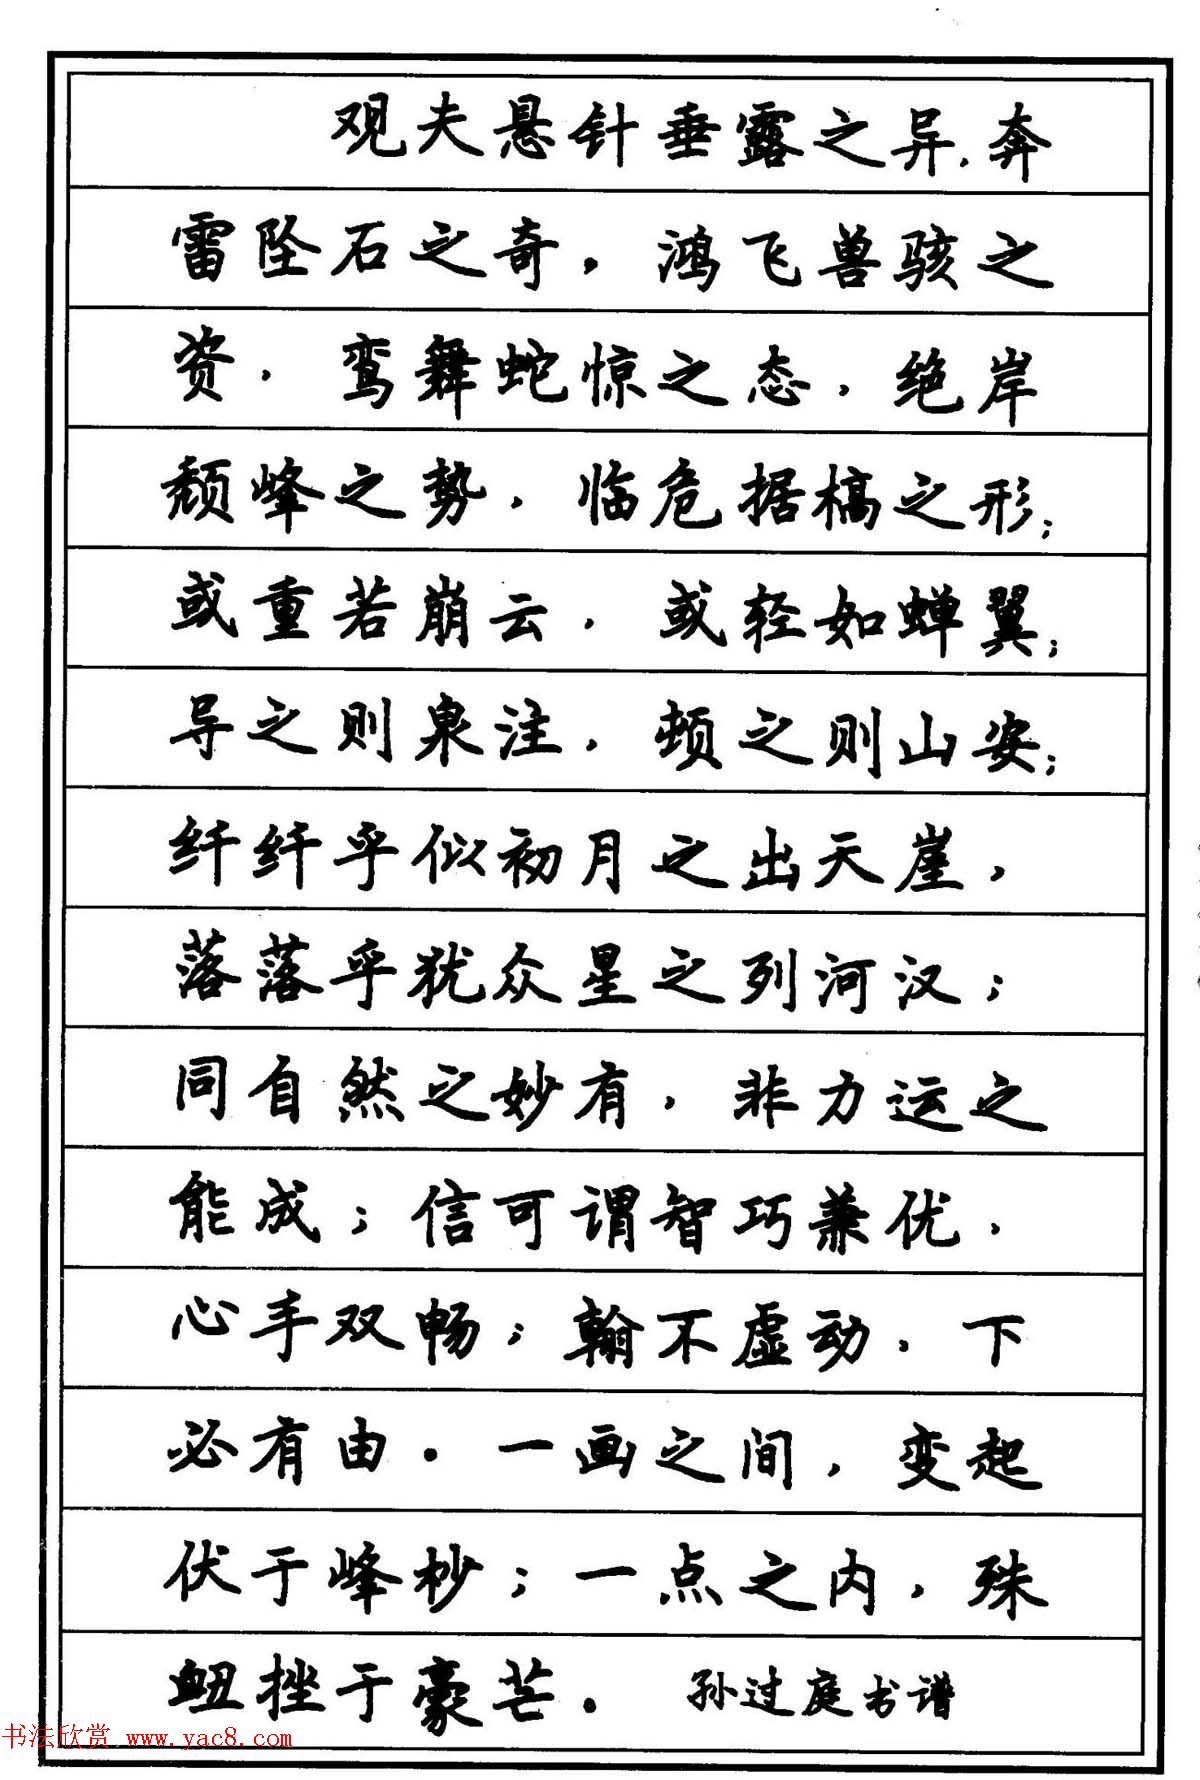 观夫悬针垂露之异，奔
雷坠石之奇。鸿飞兽骇之
资，鸾舞蛇惊之态，绝岸
颓峰之势，临危据槁之形；
或重若崩云，或轻如蝉翼；
导之则泉注，顿之则山安；
纤纤乎似初月之出天崖，
落落乎犹众星之列河汉；
同自然之妙有，非力运之
能成；信可谓智巧兼优，
心手双畅；翰不虚动，下
必有由。一画之间，变起
伏于峰杪；一点之内，殊
衄挫于豪芒。 孙过庭书谱
书法欣赏 www.yac8.com